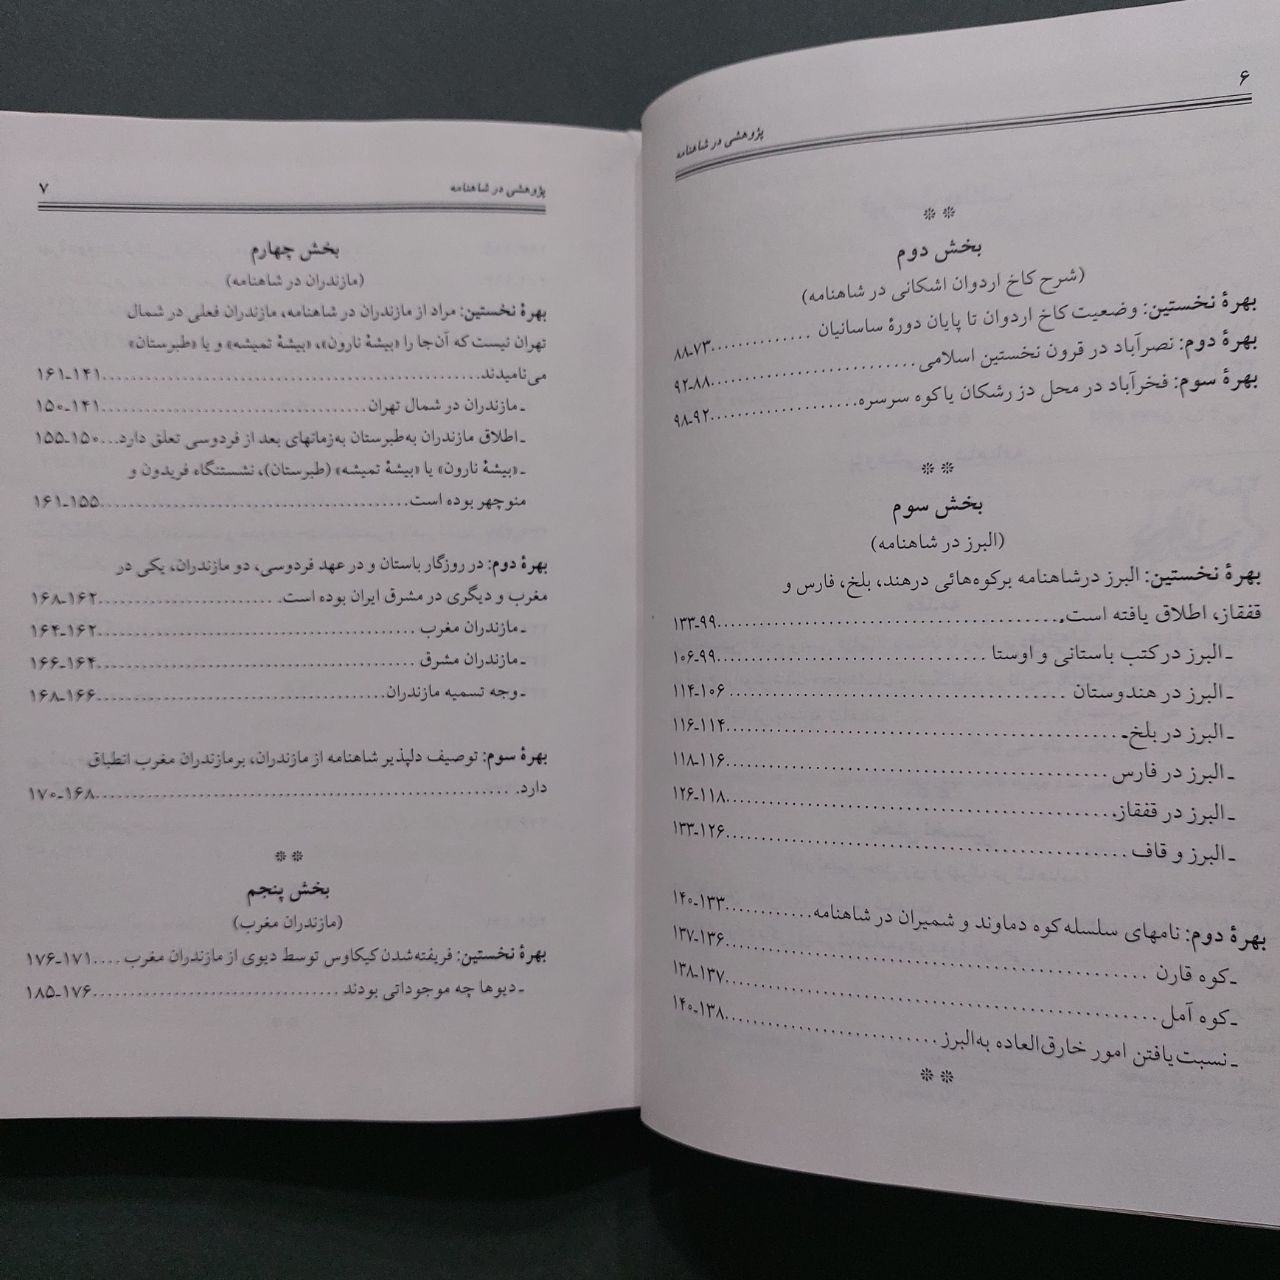 ۶
پژوهشی در شاهنامه
❊ ❊
بخش دوم
(شرح کاخ اردوان اشکانی در شاهنامه)
بهرهٔ نخستین: وضعیت کاخ اردوان تا پایان دورهٔ ساسانیان ............۷۳ـ۸۸
بهرهٔ دوم: نصرآباد در قرون نخستین اسلامی ........................۸۸ـ۹۲
بهرهٔ سوم: فخرآباد در محل دز رشکان یا کوه سرسره...................۹۲ـ۹۸
❊ ❊
بخش سوم
(البرز در شاهنامه)
بهرهٔ نخستین: البرز درشاهنامه برکوه‌هائی درهند، بلخ، فارس و
قفقاز، اطلاق یافته است........................................۹۹ـ۱۳۳
ـ البرز در کتب باستانی و اوستا ...............................۹۹ـ۱۰۶
ـ البرز در هندوستان ........................................۱۰۶ـ۱۱۴
ـ البرز در بلخ..............................................۱۱۴ـ۱۱۶
ـ البرز در فارس ............................................۱۱۶ـ۱۱۸
ـ البرز در قفقاز............................................۱۱۸ـ۱۲۶
ـ البرز و قاف ..............................................۱۲۶ـ۱۳۳
بهرهٔ دوم: نامهای سلسله کوه دماوند و شمیران در شاهنامه............۱۳۳ـ۱۴۰
ـ کوه قارن ................................................۱۳۶ـ۱۳۷
ـ کوه آمل .................................................۱۳۷ـ۱۳۸
ـ نسبت یافتن امور خارق‌العاده به‌البرز..........................۱۳۸ـ۱۴۰
❊ ❊
پژوهشی در شاهنامه
۷
بخش چهارم
(مازندران در شاهنامه)
بهرهٔ نخستین: مراد از مازندران در شاهنامه، مازندران فعلی در شمال
تهران نیست که آن‌جا را «بیشهٔ نارون»، «بیشهٔ تمیشه» و یا «طبرستان»
می‌نامیدند................................................۱۴۱ـ۱۶۱
ـ مازندران در شمال تهران ...................................۱۴۱ـ۱۵۰
ـ اطلاق مازندران به‌طبرستان به‌زمانهای بعد از فردوسی تعلق دارد...۱۵۰ـ۱۵۵
ـ «بیشهٔ نارون» یا «بیشهٔ تمیشه» (طبرستان)، نشستنگاه فریدون و
منوچهر بوده است............................................۱۵۵ـ۱۶۱
بهرهٔ دوم: در روزگار باستان و در عهد فردوسی، دو مازندران، یکی در
مغرب و دیگری در مشرق ایران بوده است. ......................۱۶۲ـ۱۶۸
ـ مازندران مغرب ............................................۱۶۲ـ۱۶۴
ـ مازندران مشرق ............................................۱۶۴ـ۱۶۶
ـ وجه تسمیه مازندران........................................۱۶۶ـ۱۶۸
بهرهٔ سوم: توصیف دلپذیر شاهنامه از مازندران، برمازندران مغرب انطباق
دارد. ....................................................۱۶۸ـ۱۷۰
❊ ❊
بخش پنجم
(مازندران مغرب)
بهرهٔ نخستین: فریفته‌شدن کیکاوس توسط دیوی از مازندران مغرب ....۱۷۱ـ۱۷۶
ـ دیوها چه موجوداتی بودند ..................................۱۷۶ـ۱۸۵